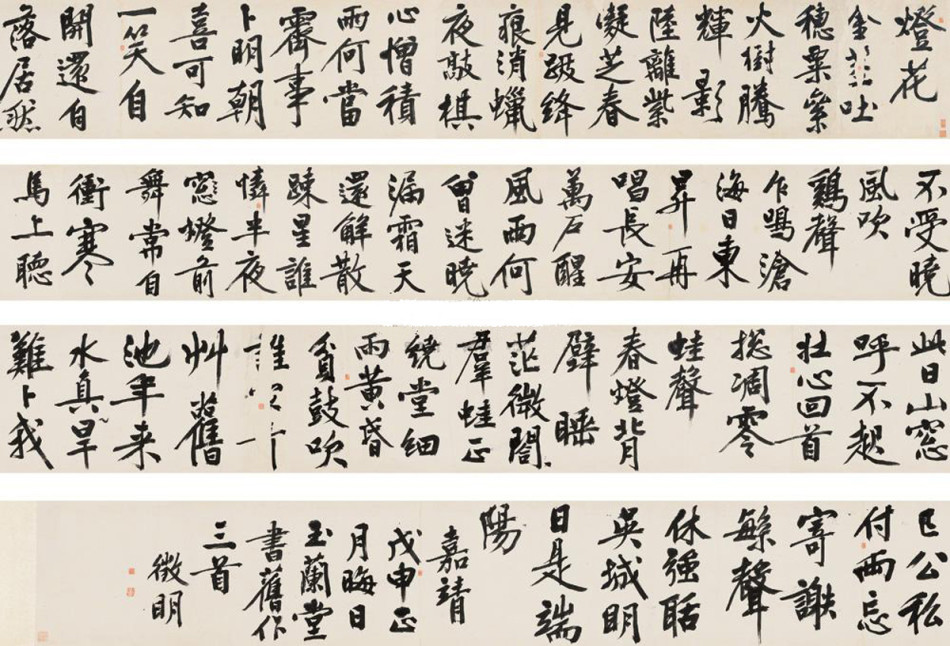 燈花
金吐
穗粟窠
火樹騰
輝影
陸離紫
凝芝春
見跋絳
痕消蠟
夜敲棋
心憎積
雨何當
霽事
卜明朝
喜可知
一笑自
開還自
落居然
不受曉
風吹
鷄聲
乍鳴滄
海日東
昇再
唱長安
萬戶醒
風雨何
曾迷曉
漏霜天
還解散
踈星誰
憐半夜
窓燈前
舞常自
衝寒
馬上聽
此日山窓
呼不起
壯心回首
摠凋零
蛙聲
春燈背
壁睡
茫微閣
羣蛙正
繞堂細
雨黃昏
貧鼓吹
誰家
艸舊
池年来
水真旱
難卜我
已公私
付兩忘
寄謝
繁聲
休強聒
吳城明
日是端
陽
嘉靖
戊申正
月晦日
玉蘭堂
書舊作
三首
徵明